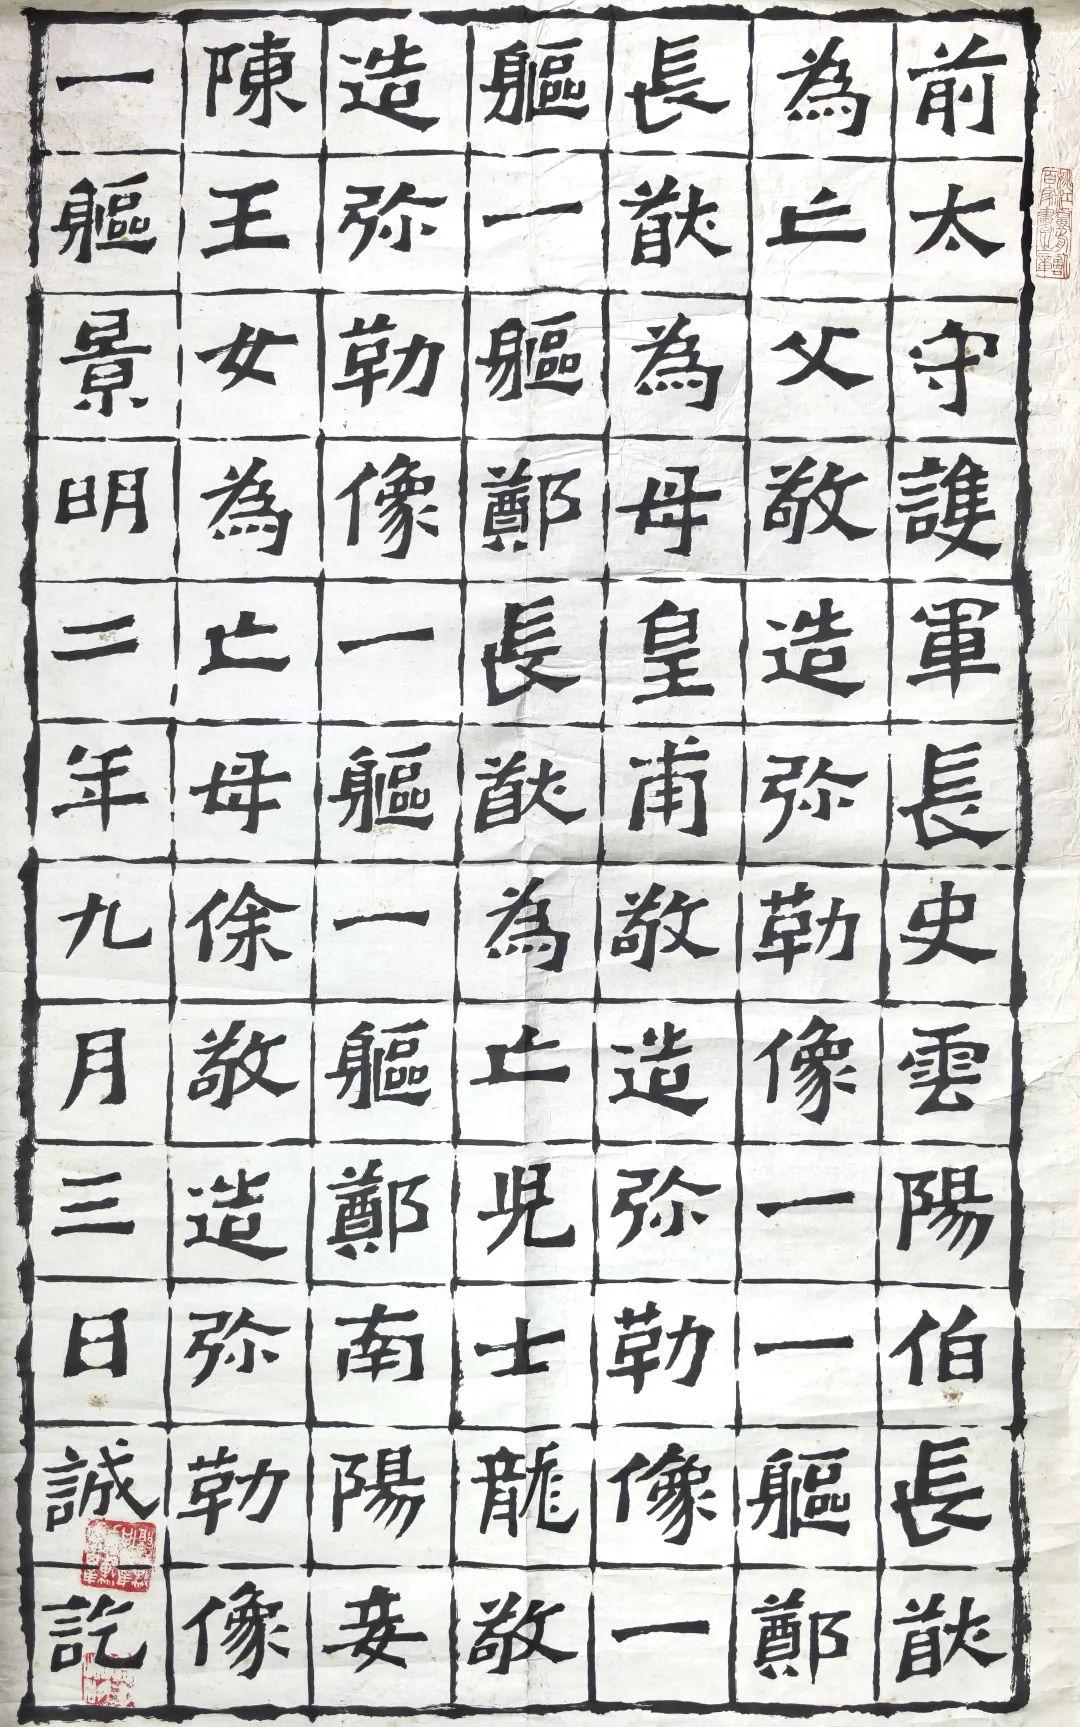 前太守護軍長史雲陽伯長猷
為亡父敬造弥勒像一一軀鄭
長猷為母皇甫敬造弥勒像一
軀一軀鄭長猷為亡兒士龍敬
造弥勒像一軀一軀鄭南陽妾
陳王女為亡母徐敬造弥勒像
一軀景明二年九月三日誠訖